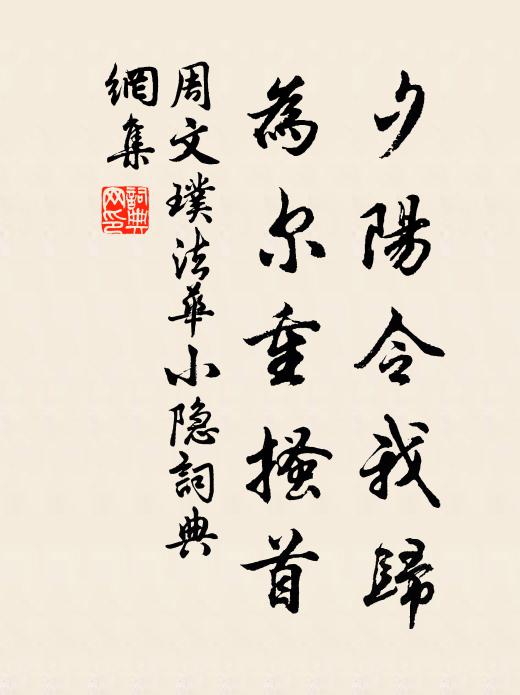 夕陽令我歸
為尔重搔首
周文璞法華小隐詞典
網集
詞典
网印